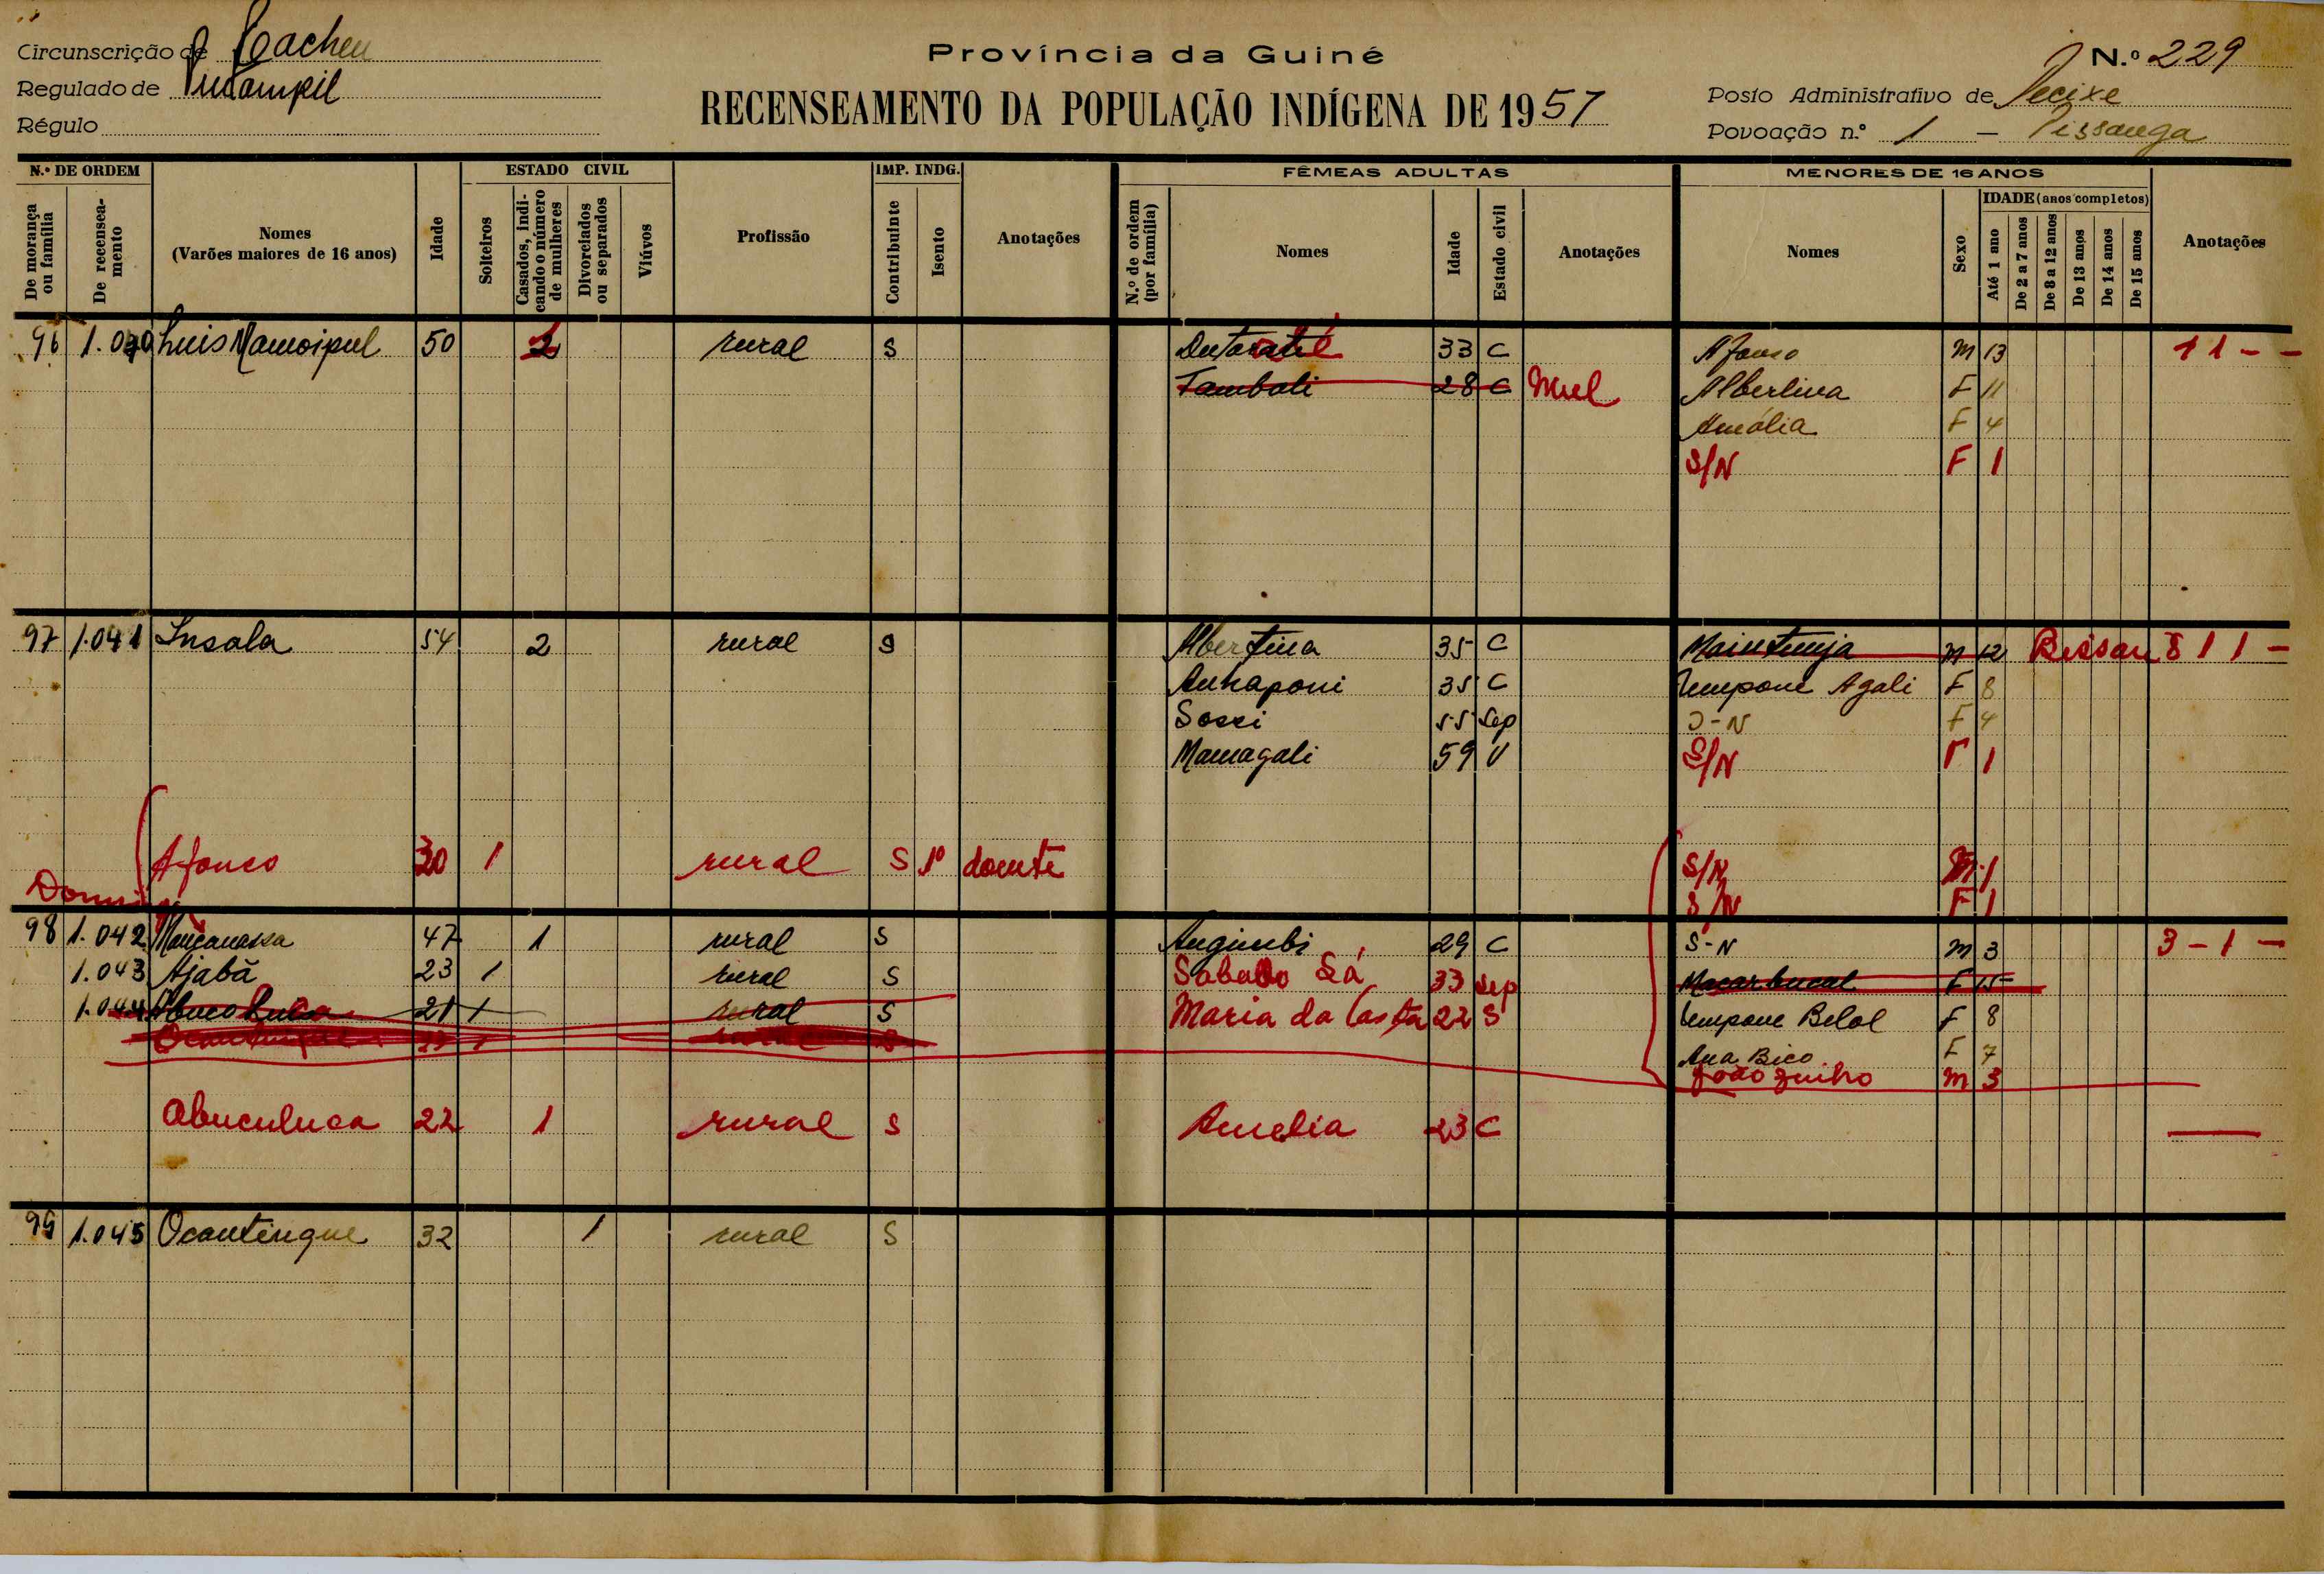 Circunscrição de Cacheu
Província da Guiné
N.º 229
Regulado de
Posto Administrativo de Jecixe
RECENSEAMENTO DA POPULAÇÃO INDÍGENA DE 1957
Régulo
Povoação n.º 1 – Pissanga
N.º DE ORDEM
ESTADO CIVIL
IMP. INDG.
FÊMEAS ADULTAS
MENORES DE 16 ANOS
IDADE (anos completos)
De morança ou família
De recenseamento
Nomes
(Varões maiores de 16 anos)
Idade
Solteiros
Casados, indicando o número de mulheres
Divorciados ou separados
Viúvos
Profissão
Contribuinte
Isento
Anotações
N.º de ordem (por família)
Nomes
Idade
Estado civil
Anotações
Nomes
Sexo
Até 1 ano
De 2 a 7 anos
De 8 a 12 anos
De 13 anos
De 14 anos
De 15 anos
Anotações
96 Luis Namoipul 50 rural S 33 C Afonso M 13 1 1 - -
Tambali 28 C Mul Albertina F 11
Amália F 4
S/N F 1
97 1.041 Insala 54 2 rural S Albertina 35 C Maintunja M 12 Bissau 8 1 1 -
Anhaponi 35 C Umpone Agali F 8
Sossi 55 Sep S-N F 4
Mamagali 59 V S/N F 1
Afonso 30 1 rural S 1º doente S/N M 1
S/N F 1
98 1.042 Mancanassa 47 1 rural S Angimbi 29 C S-N M 3 3 - 1 -
1.043 Ajabã 23 1 rural S Sabado Sá 33 Sep Macarbucal F 15
1.044 21 1 rural S Maria da Costa 22 S Umpone Belol F 8
Ana Bico F 7
Joãozinho M 3
Abuculuca 22 1 rural S Amelia 23 C
99 1.045 Ocantingue 32 1 rural S